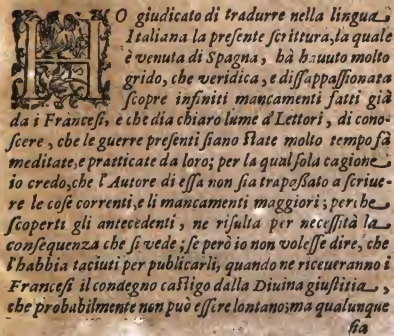 HO giudicato di tradurre nella lingua
Italiana la preſente ſcrittura, la quale
è venuta di Spagna, hà hauuto molto
grido, che veridica, e diſſappaſſionata
ſcopre infiniti mancamenti fatti già
da i Franceſi, e che dia chiaro lume à Lettori, di cono-
ſcere, che le guerre preſenti ſiano ſtate molto tempo fà
meditate, e pratticate da loro; per la qual ſola cagione
io credo, che l'Autore di eſſa non ſia trapaßato a ſcriue-
re le coſe correnti, e li mancamenti maggiori; perche
ſcoperti gli antecedenti, ne riſulta per neceſſità la
conſequenza che ſi vede; ſe però io non voleſſe dire, che
l'habbia taciuti per publicarli, quando ne riceueranno i
Franceſi il condegno caſtigo dalla Diuina giuſtitia,
che probabilmente non può eſſere lontano; ma qualunque
ſia